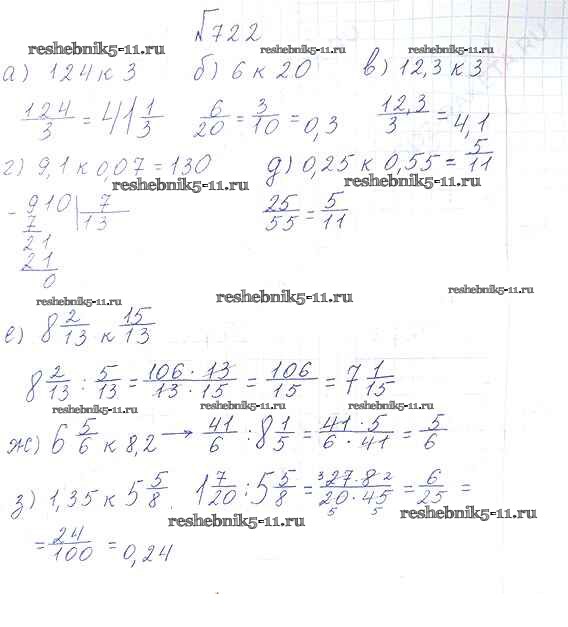 №722
reshebnik5-11.ru reshebnik5-11.ru reshebnik5-11.ru
а) 124 к 3 б) 6 к 20 в) 12,3 к 3
124/3 = 41 1/3 6/20 = 3/10 = 0,3 12,3/3 = 4,1
г) 9,1 к 0,07 = 130 д) 0,25 к 0,55 = 5/11
reshebnik5-11.ru reshebnik5-11.ru
- 910 | 7 25/55 = 5/11
7 13
21
21
0
reshebnik5-11.ru reshebnik5-11.ru reshebnik5-11.ru
е) 8 2/13 к 15/13
8 2/13 : 5/13 = 106 · 13/13 · 15 = 106/15 = 7 1/15
reshebnik5-11.ru reshebnik5-11.ru reshebnik5-11.ru
ж) 6 5/6 к 8,2 → 41/6 : 8 1/5 = 41 · 5/6 · 41 = 5/6
з) 1,35 к 5 5/8. 1 7/20 : 5 5/8 = 3 27 · 8 2/20 · 45 = 6/25 =
5 5
reshebnik5-11.ru reshebnik5-11.ru
= 24/100 = 0,24